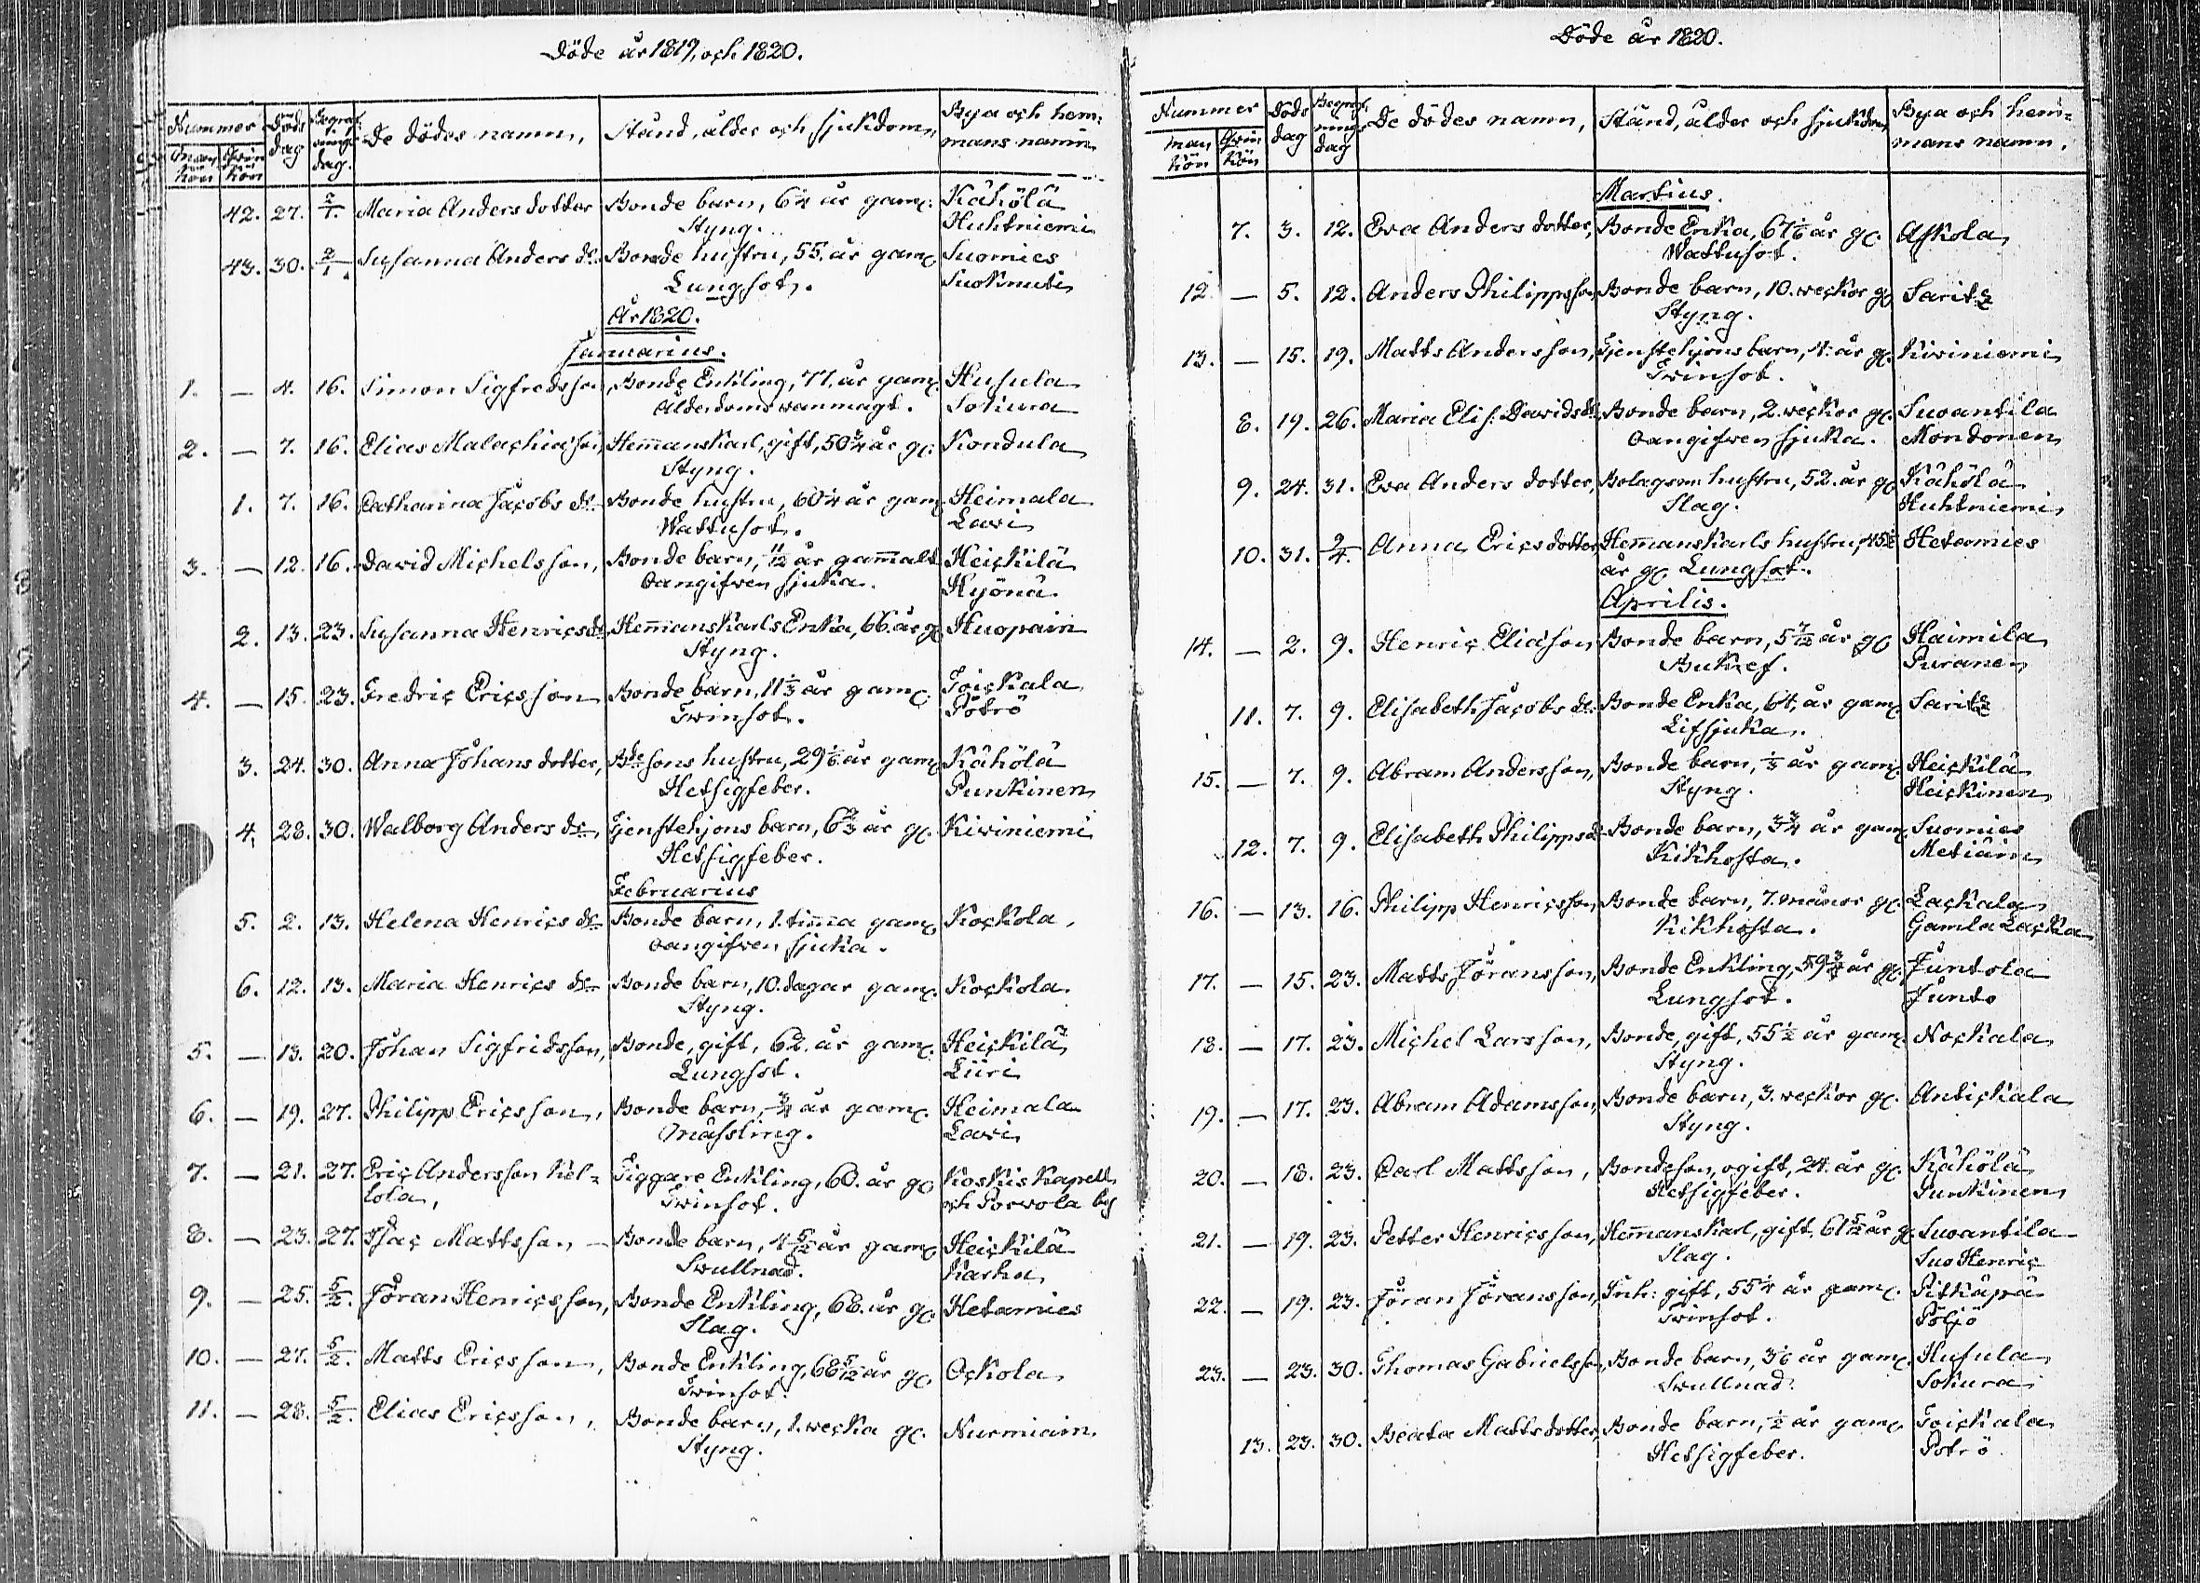 Döde år 1819, och 1820.
Nummer Döds dag Begrafnings dag. De dödes namn, Stånd, ålder och sjukdom, Bya och hemmans namn.
man kön Qvin kön
42. 27. 2/1. Maria Anders dotter Bonde barn, 6 1/4 år gam. Kähölä
Styng. Huhtniemi
43. 30. 2/1. Susanna Anders dr. Bonde hustru, 55. år gam. Suomies
Lungsot. Suoknuti
År 1820.
Januarius.
1. — 4. 16. Simon Sigfredsson, Bonde Enkling, 77. år gam. Husula
Ålderdoms wanmagt. Sokura
2. — 7. 16. Elias Malachiasson, Hemmans karl, gift, 50 3/4 år g. Kondula
Styng.
1. 7. 16. Catharina Jacobs dr. Bonde hustru, 60 1/4 år gam. Heimala
Wattusot. Lavi
3. — 12. 16. David Michelsson, Bonde barn, 11/12 år gammalt Heickilä
Oangifven sjuka. Hyönä
2. 13. 23. Susanna Henrics dr. Hemmanskarls Enka, 66. år g. Huopain
Styng.
4. — 15. 23. Fredric Ericsson Bonde barn, 11 1/3 år gam. Toickala
Twinsot. Potrö
3. 24. 30. Anna Johans dotter, Bde sons hustru, 29 1/6 år gam. Kähölä
Hetsigfeber. Punkinen
4. 28. 30. Walborg Anders dr. Tjenstehjons barn, 6 2/3 år g. Kiviniemi
Hetsigfeber.
Februarius
5. 2. 13. Helena Henrics dr. Bonde barn, 1. timma gam. Kockola.
oangifven sjuka.
6. 12. 13. Maria Henrics dr. Bonde barn, 10. dagar gam. Kockola.
Styng.
5. — 13. 20. Johan Sigfridsson, Bonde, gift, 62. år gam. Heickilä
Lungsot. Liiri
6. — 19. 27. Philipp Ericsson, Bonde barn, 3/4 år gam. Heimala
Mässling. Lavi
7. — 21. 27. Eric Andersson Kel-
lola, Tiggare Enkling, 60. år g. Koskis Kapell
Twinsot. och Porvola by
8. — 23. 27. Isac Mattsson — Bonde barn, 4 5/12 år gam. Heickilä
Swullnad. Karhu
9. — 25. 5/2. Jöran Henricsson, Bonde Enkling, 68. år g. Hetamies
Slag.
10. — 27. 5/2. Matts Ericsson, Bonde Enkling, 68 5/12 år g. Ockola
Twinsot.
11. — 28. 5/2. Elias Ericsson, Bonde barn, 1. wecka g. Nurmiain
Styng.
Döde år 1820.
Nummer Döds dag Begrafnings dag De dödes namn, Stånd, ålder och sjukdom Bya och hemmans namn.
man kön Qvin kön
Martius.
7. 3. 12. Eva Anders dotter, Bonde Enka, 67 1/6 år g. Askola
Wattusot.
12. — 5. 12. Anders Philippsson Bonde barn, 10. weckor g. Saritz
Styng.
13. — 15. 19. Matts Andersson, Tjenstehjons barn, 4. år g. Kiviniemi
Twinsot.
8. 19. 26. Maria Elis. Davids dr. Bonde barn, 2. weckor g. Suoantila
Oangifven sjuka. Mondonen
9. 24. 31. Eva Anders dotter, Bolagsm. hustru, 52. år g. Kähölä
Slag. Huhtniemi
10. 31. 2/4. Anna Erics dotter Hemmanskarls hustru, 45 1/2 Hetamies
år g. Lungsot.
Aprilis.
14. — 2. 9. Henric Eliasson Bonde barn, 5 7/12 år g. Haimila
Bukref. Puranen
11. 7. 9. Elisabeth Jacobs dr. Bonde Enka, 64. år gam. Saritz
Lifsjuka.
15. — 7. 9. Abram Andersson, Bonde barn, 1/3 år gam. Heickilä
Styng. Heickinen
12. 7. 9. Elisabeth Philipps dr. Bonde barn, 3 3/4 år gam. Suomies
Kikhosta. Metiäin
16. — 13. 16. Philipp Henricsson, Bonde barn, 7. månor g. Lackala
Kikhosta. Gamla Lacka
17. — 15. 23. Matts Jöransson, Bonde Enkling, 59 3/4 år g. Juntola
Lungsot. Junto
18. — 17. 23. Michel Larsson, Bonde, gift, 55 1/2 år gam. Nockala
Styng.
19. — 17. 23. Abram Adamsson, Bonde barn, 3. weckor g. Antickala
Styng.
20. — 18. 23. Carl Mattsson, Bondeson, ogift, 24. år g. Kähölä
Hetsigfeber. Punkinen
21. — 19. 23. Petter Henricsson, Hemmanskarl, gift, 61 5/12 år g. Suoantila
Slag. Suo Henric
22. — 19. 23. Jöran Jöransson, Inh: gift, 55 1/4 år gam. Pitkäpä
Twinsot. Poljo
23. — 23. 30. Thomas Gabrielsson, Bonde barn, 3 1/6 år gam. Husula
Swullnad. Sokura
13. 23. 30. Beata Mattsdotter, Bonde barn, 1/2 år gam. Toickala
Hetsigfeber. Potrö